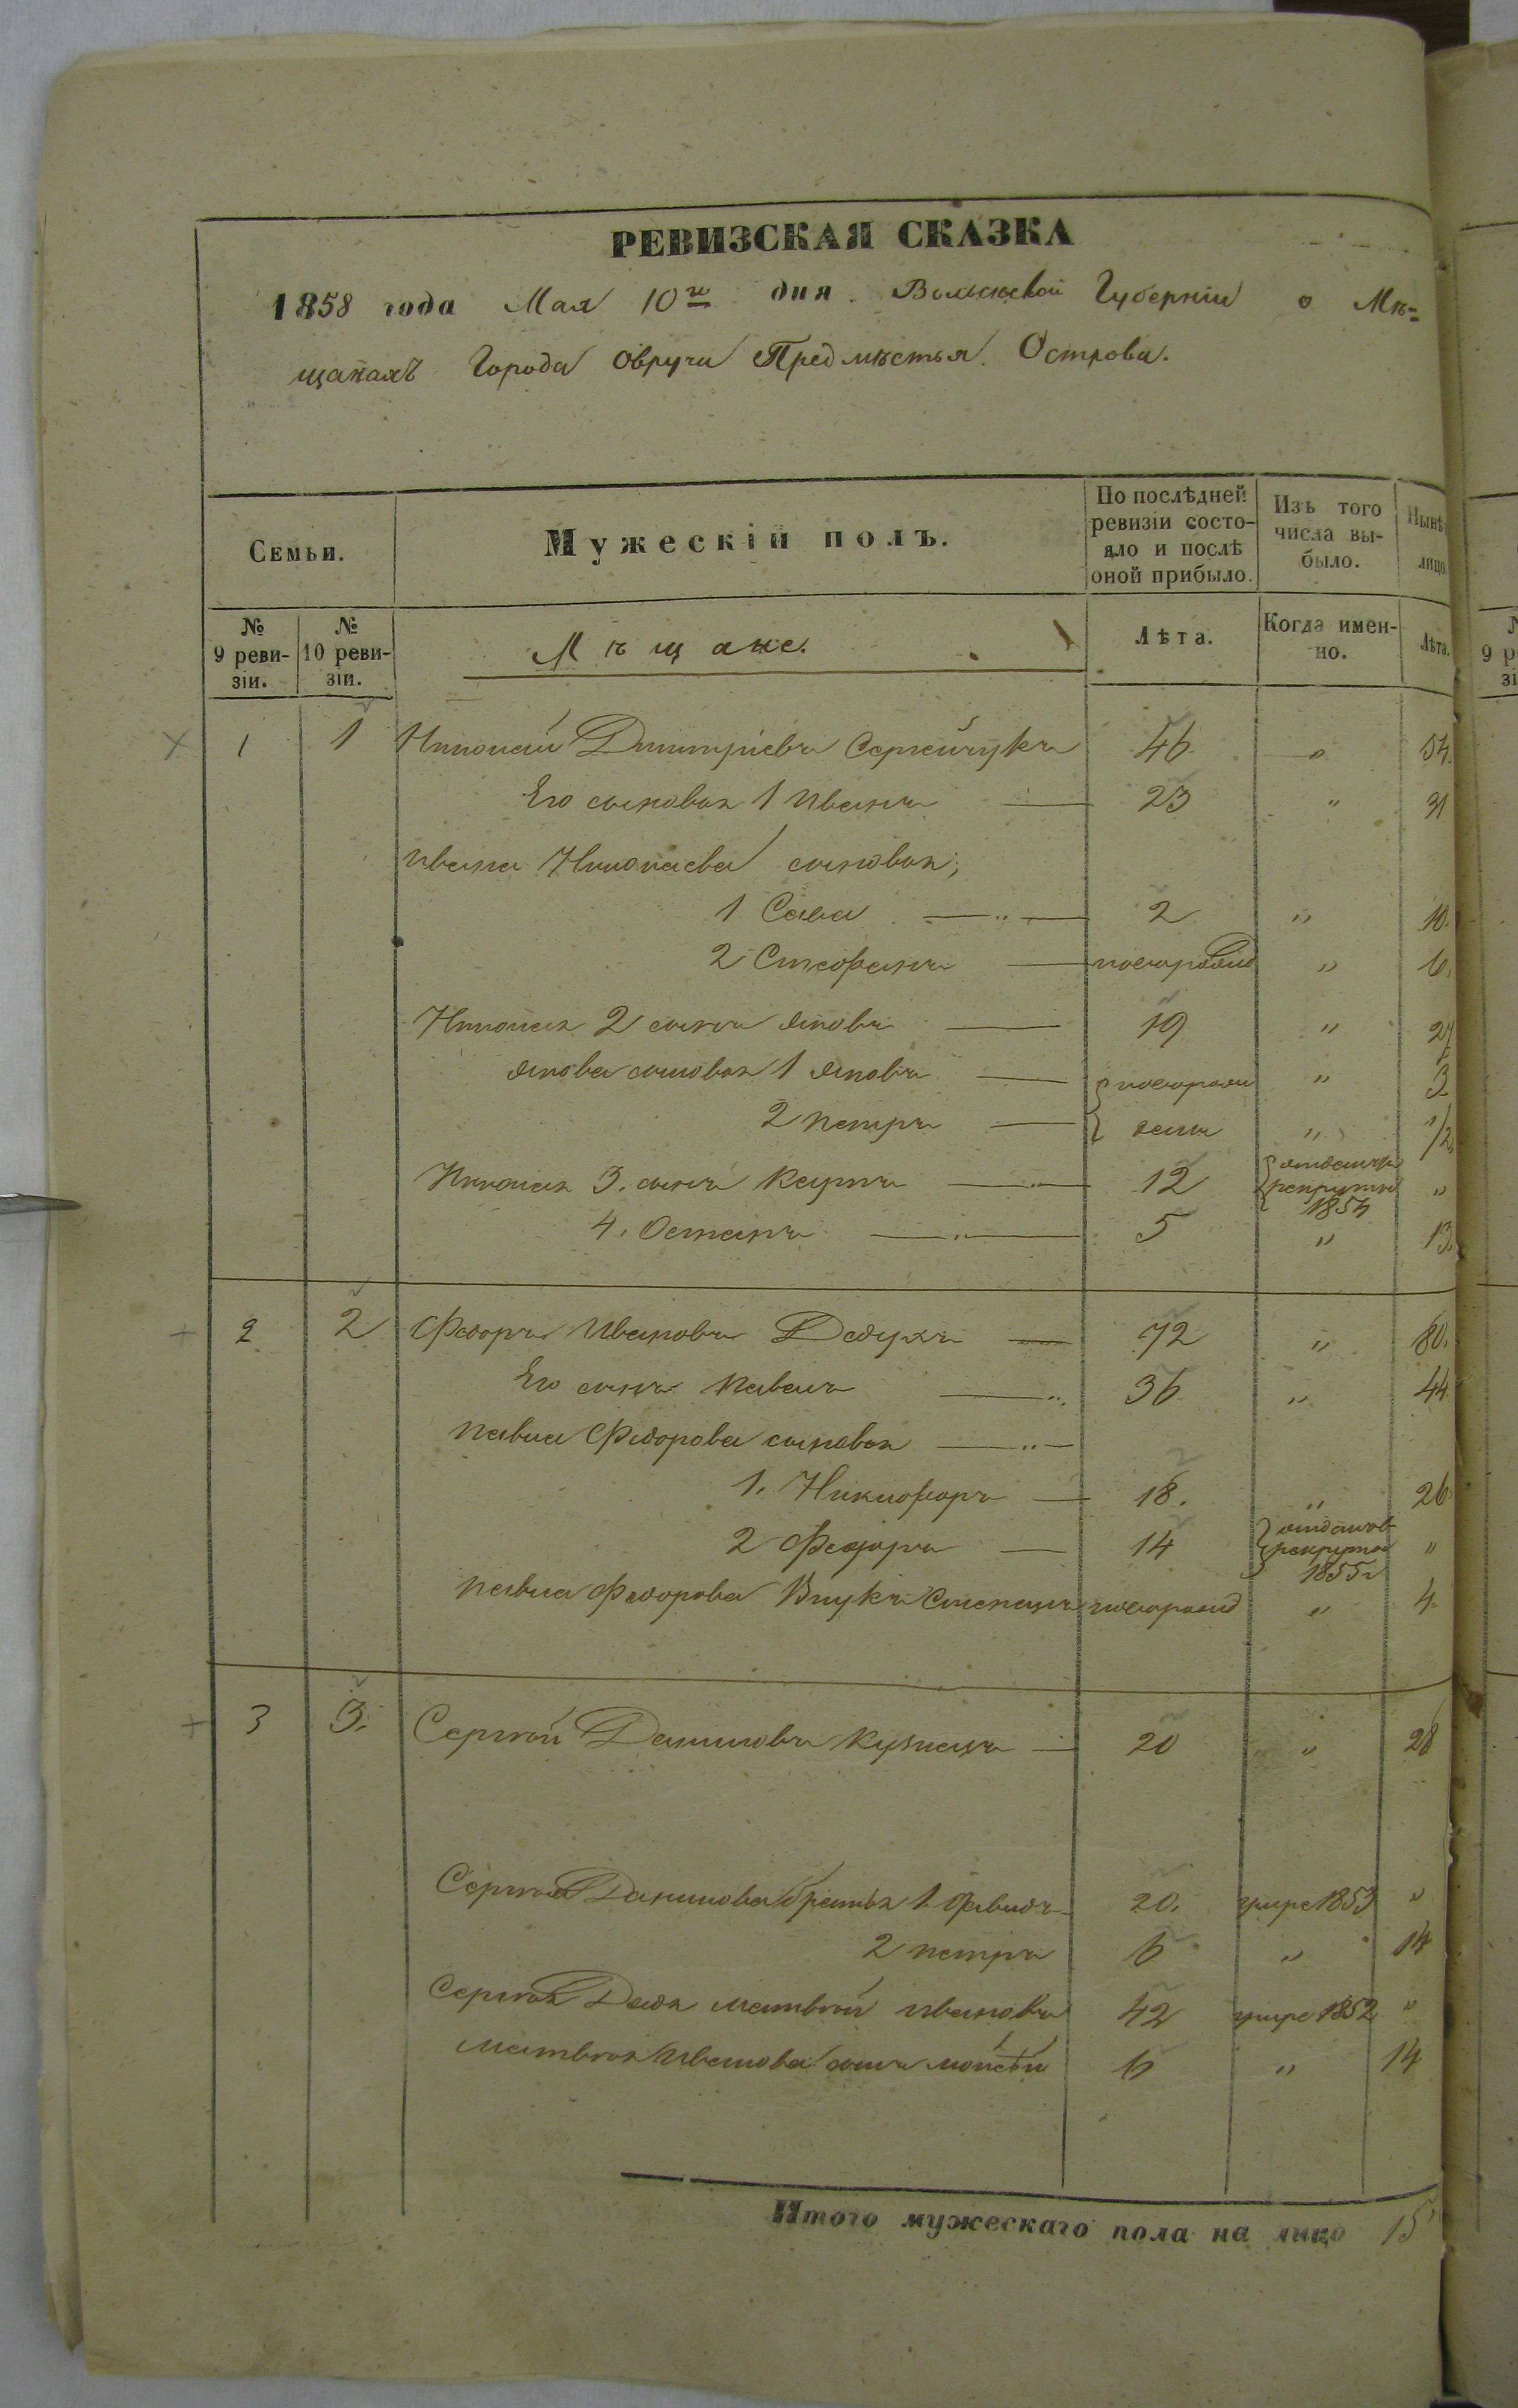 РЕВИЗСКАЯ СКАЗКА
1858 года Мая 10го дня. Волынской Губерніи о Мѣ-
щанахъ Города Овруча Предмѣстья Острова.
Семьи.
Мужескій полъ.
По послѣдней ревизіи состо-
яло и послѣ оной прибыло.
Изъ того числа вы-
было.
Нынѣ лицо.
№ 9 реви-
зіи.
№ 10 реви-
зіи.
Мѣщане.
Лѣта.
Когда имен-
но.
Лѣта.
1 1 Николай Димитріевъ Сергейчукъ 46 " 54.
Его сыновья 1 Иванъ 23 " 31
Ивана Николаева сыновья;
1 Сава 2 " 10.
2 Стефанъ новорожд " 6.
Николая 2 сынъ Яковъ 19 " 27
Якова сыновья 1 Яковъ новорожд " 3
2 Петръ " 1/2
Николая 3. сынъ Карпъ 12 отданъ въ рекруты 1854 "
4. Остапъ 5 " 13.
2 2 Федоръ Ивановъ Дедухъ 72 " 80.
Его сынъ Павелъ 36 " 44
Павла Федорова сыновья
1. Никифоръ 18. " 26.
2 Федоръ 14 отданъ въ рекруты 1855 г "
Павла Федорова Внукъ Степанъ новорожд " 4.
3 3. Сергѣй Даниловъ Кузнецъ 20 " 28
Сергѣя Данилова братья 1. 20. умре 1853 "
2 Петръ 6 " 14
Сергѣя Дядя Матвѣй Ивановъ 42 умре 1852 "
Матвѣя Иванова сынъ Мойсѣй 6 " 14
Итого мужескаго пола на лицо 15